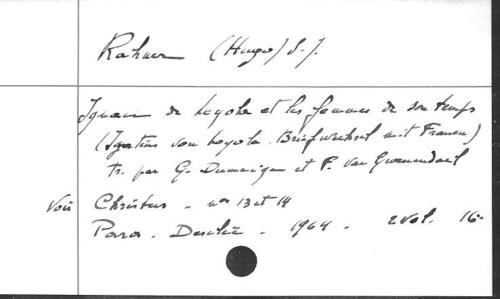 Rahner (Hugo) S.J.
Ignace de Loyola et les femmes de son temps
(Ignatius von Loyola. Briefwechsel mit Frauen)
Tr. par G. Dumeige et F. van Groenendael
Voir Christus - nos 13 et 14
Paris. Desclée - 1964 - 2 vol. 16-